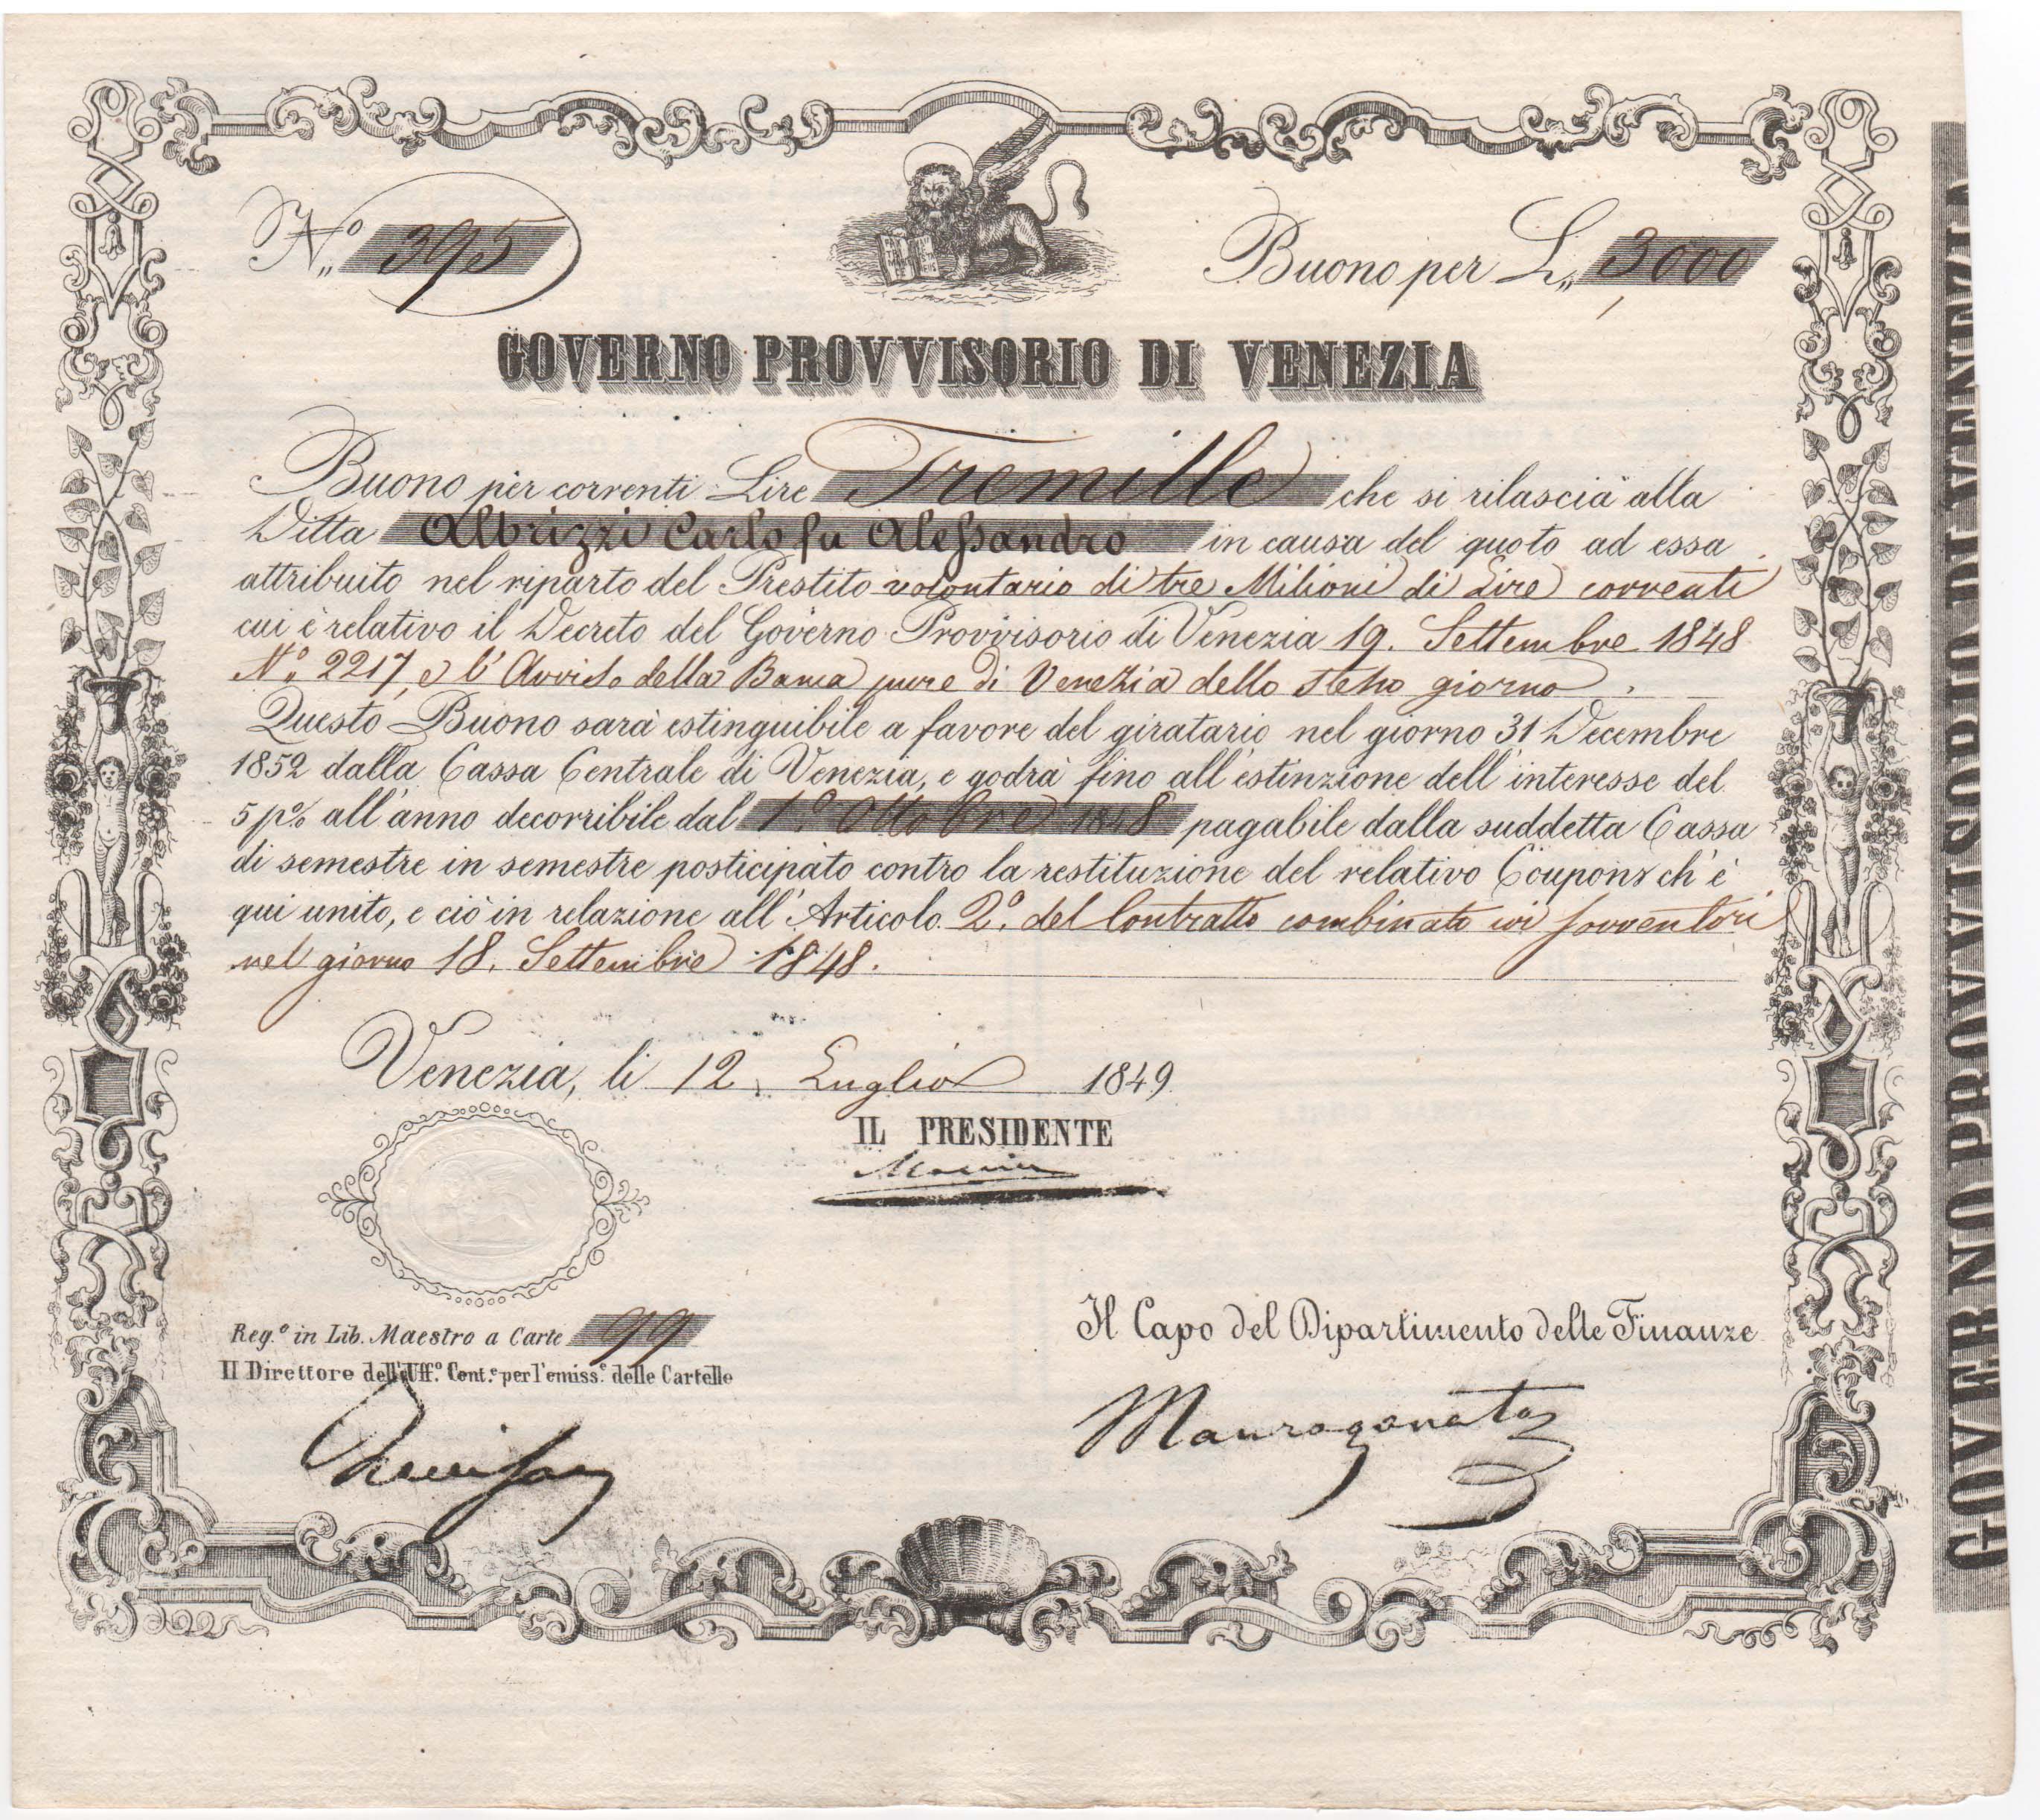 N.o 395
Buono per L. 3,000
GOVERNO PROVVISORIO DI VENEZIA
Buono per correnti Lire Tremille che si rilascia alla
Ditta Albrizzi Carlo fu Alessandro in causa del quoto ad essa
attribuito nel riparto del Prestito volontario di tre Milioni di Lire correnti
cui è relativo il Decreto del Governo Provvisorio di Venezia 19. Settembre 1848
N.o 2217, e l'Avviso della Banca pure di Venezia dello stesso giorno.
Questo Buono sarà estinguibile a favore del giratario nel giorno 31 Decembre
1852 dalla Cassa Centrale di Venezia, e godrà fino all'estinzione dell'interesse del
5 p% all'anno decorribile dal 1.o Ottobre 1848 pagabile dalla suddetta Cassa
di semestre in semestre posticipato contro la restituzione del relativo Coupons ch'è
qui unito, e ciò in relazione all'Articolo 2.o del Contratto combinato coi sovventori
nel giorno 18. Settembre 1848.
Venezia, li 12. Luglio 1849
IL PRESIDENTE
Manin
Reg.o in Lib. Maestro a Carte 99
Il Direttore dell'Uff.o Cont.e per l'emiss.e delle Cartelle
Il Capo del Dipartimento delle Finanze
Maurogonato
GOVERNO PROVVISORIO DI VENEZIA